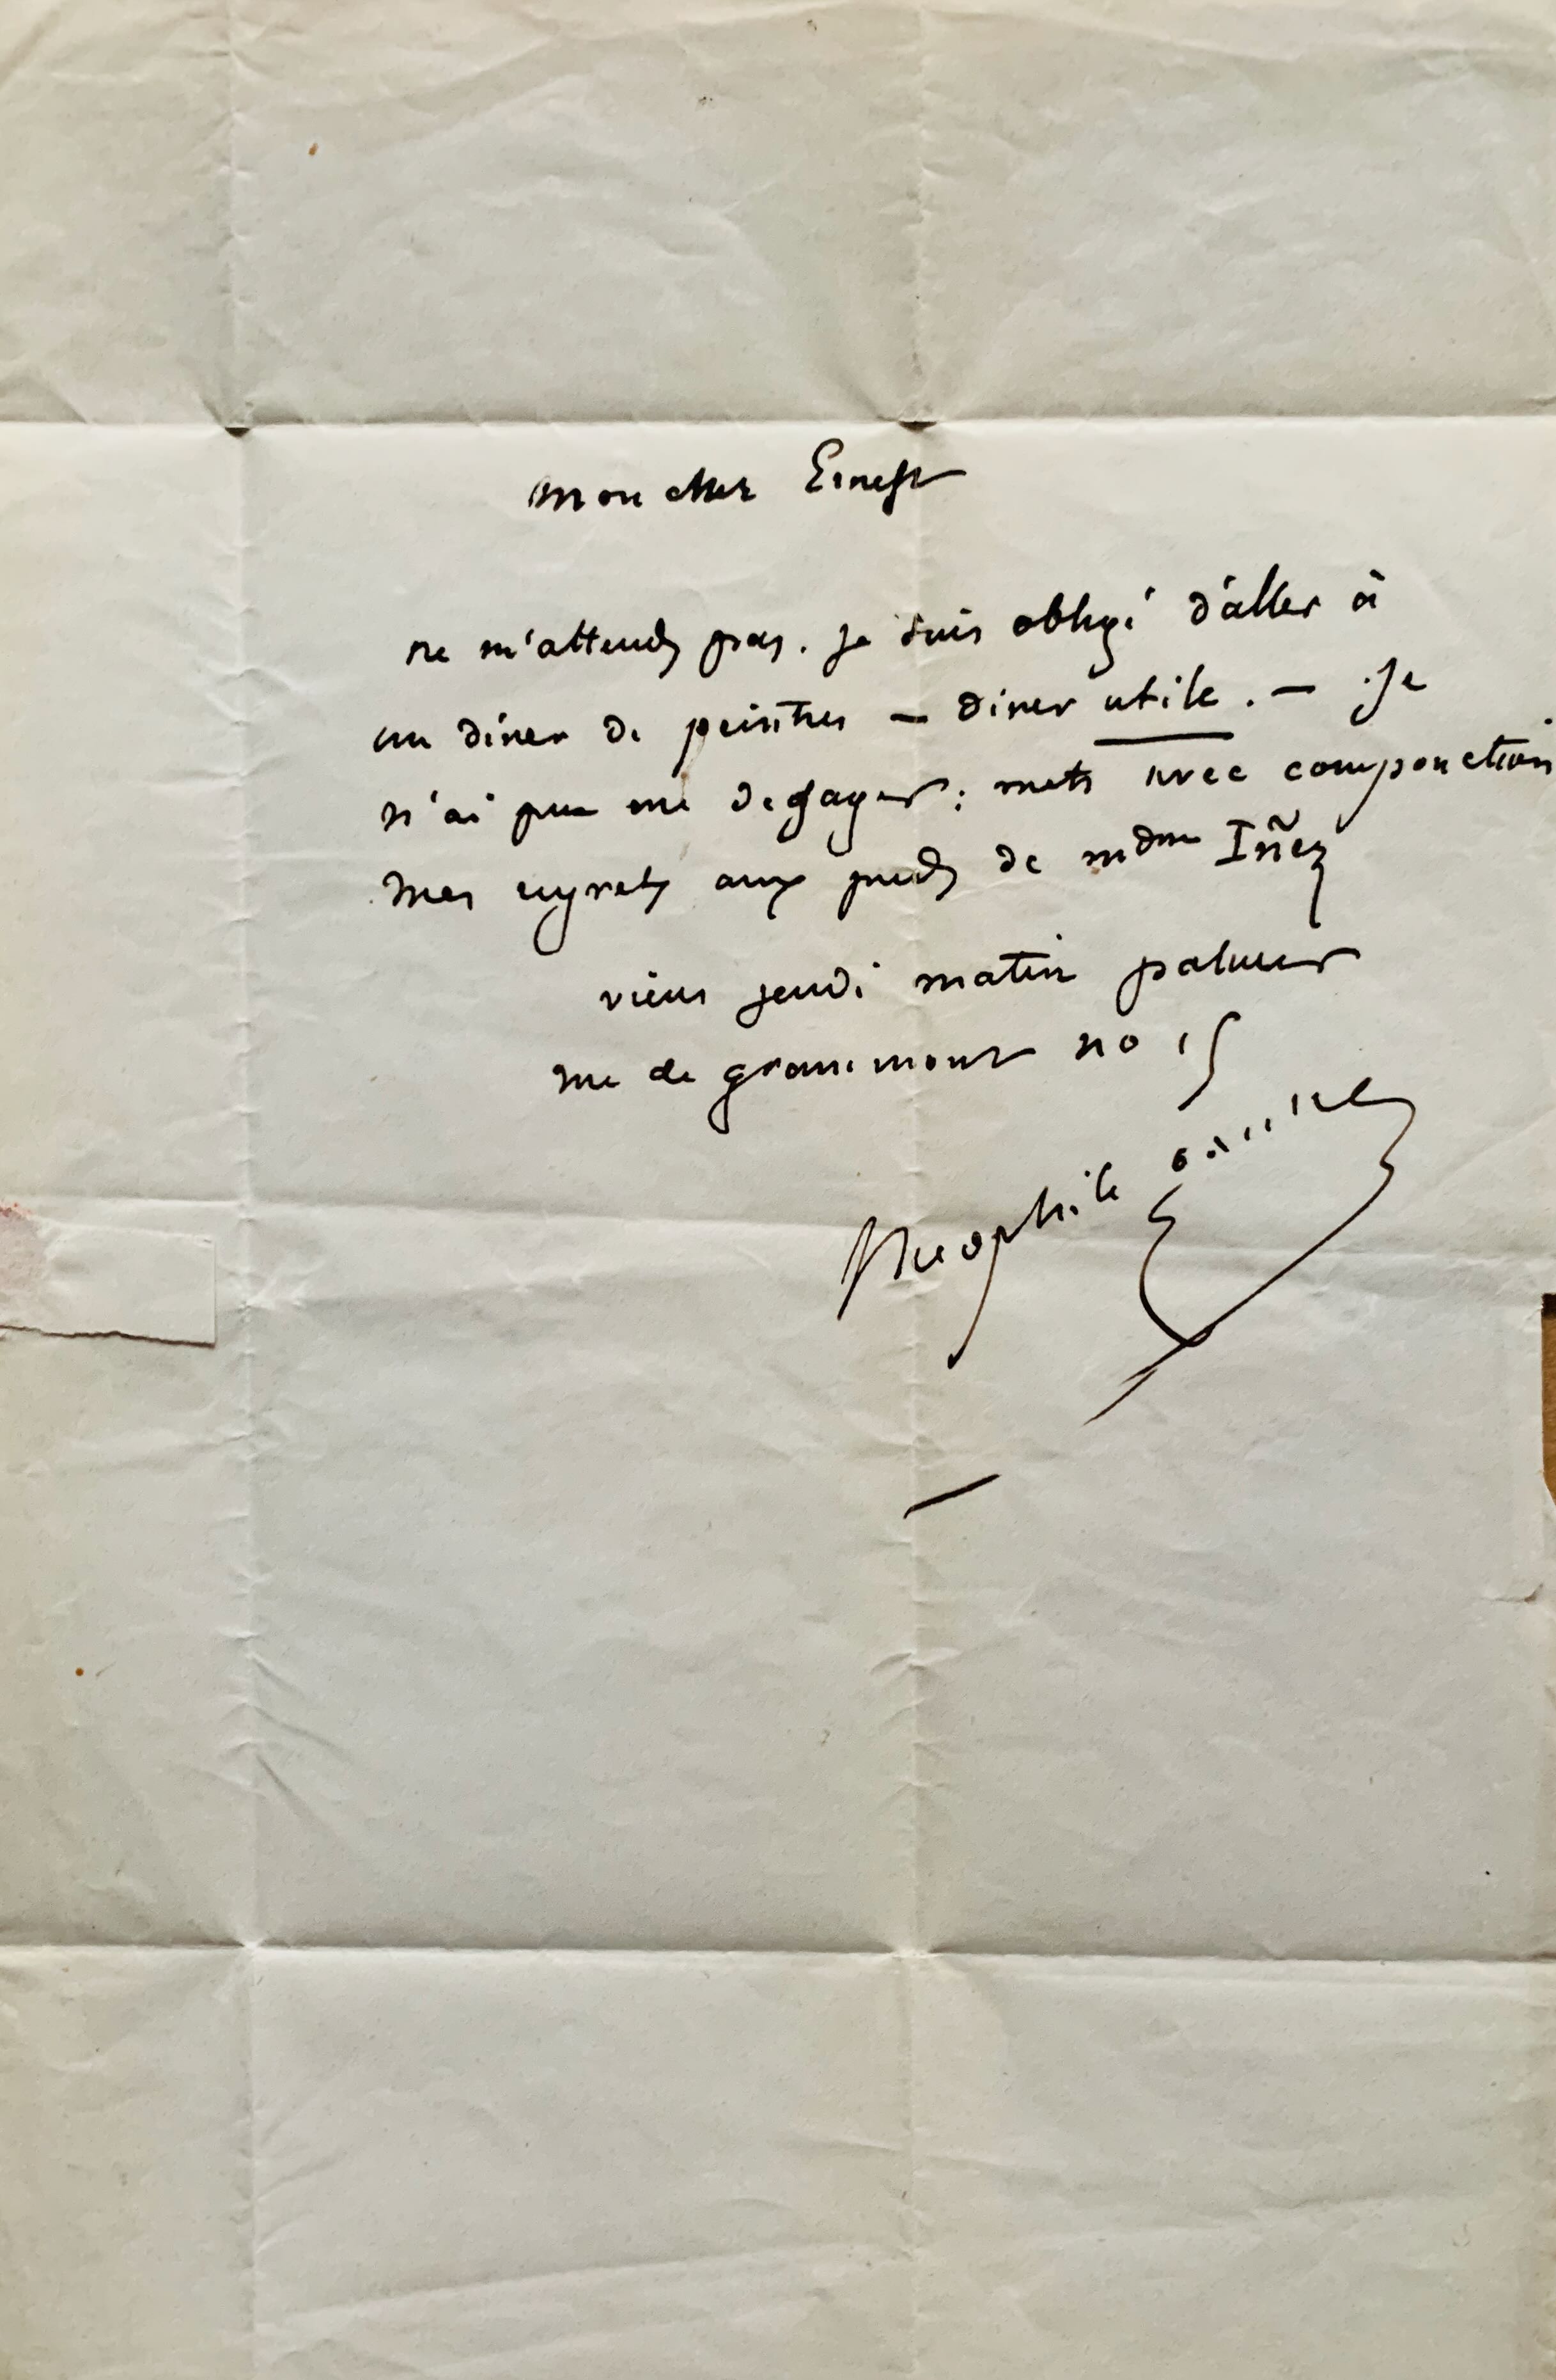 mon cher Ernest
ne m'attends pas. je suis obligé d'aller à
un diner de peintres — diner utile. — Je
n'ai pu me degager; mets avec componction
mes regrets aux pieds de mdme Iñez
viens jeudi matin
rue de grammont no 15
theophile gautier